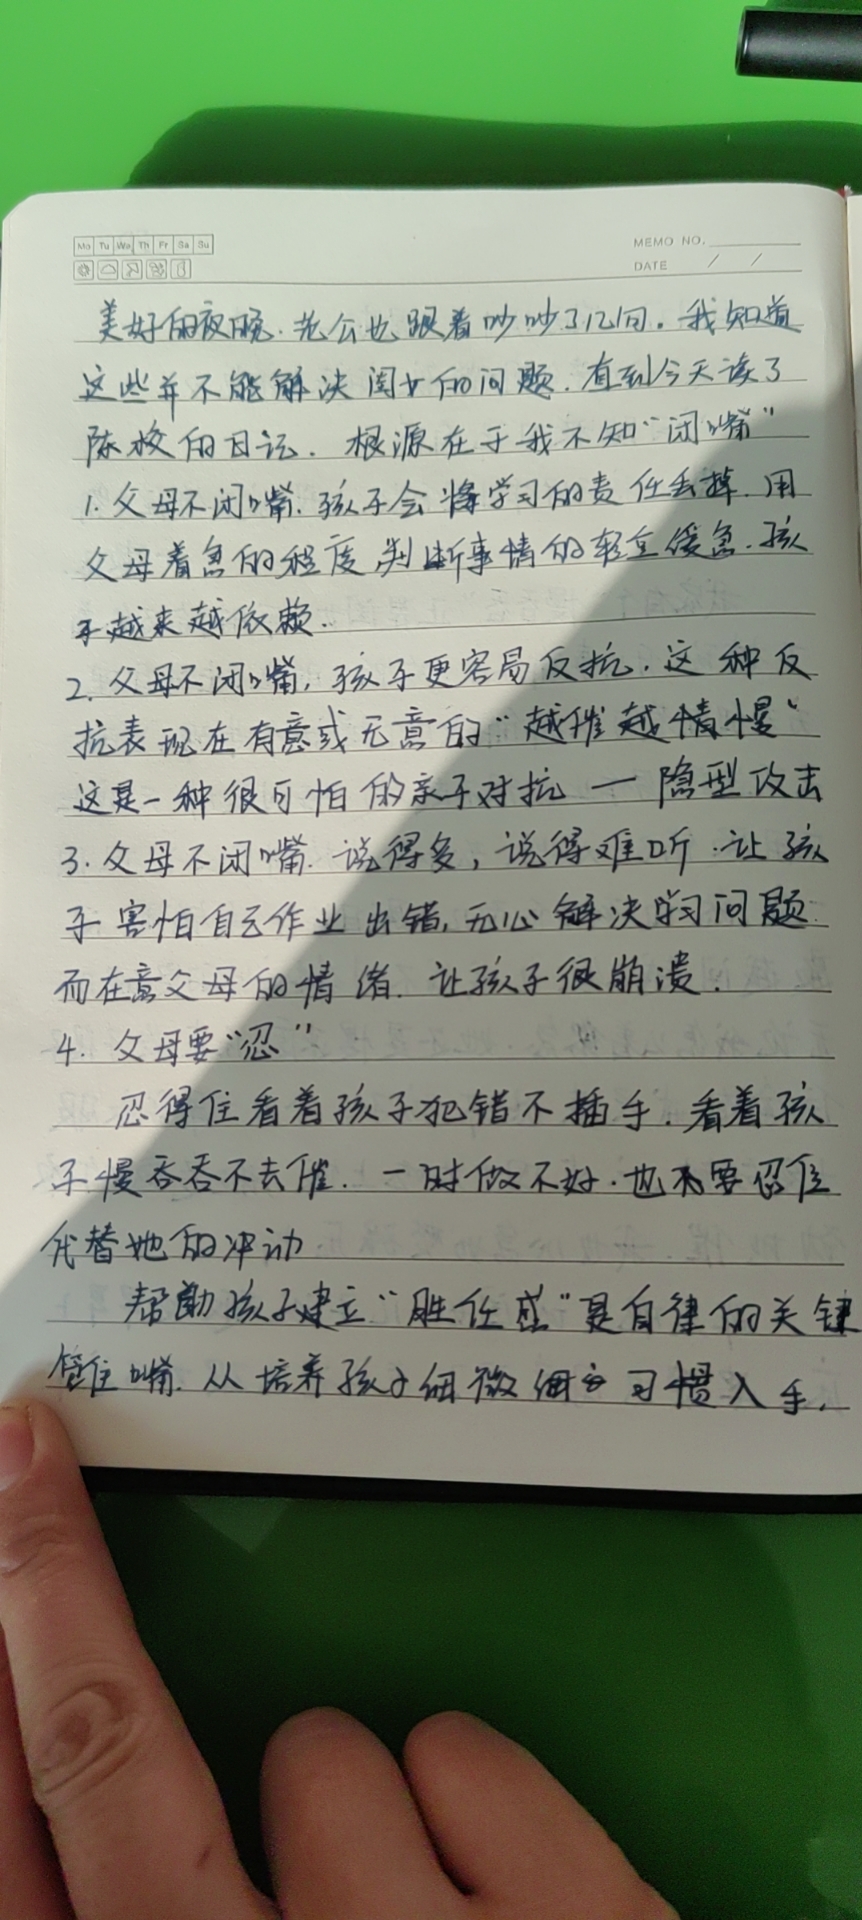 Mo Tu We Th Fr Sa Su
MEMO NO.
DATE / /
美好的夜晚.老公也跟着吵吵了几句。我知道
这些并不能解决闺女的问题.直到今天读了
陈校的日记.根源在于我不知“闭嘴”
1.父母不闭嘴.孩子会将学习的责任丢掉.用
父母着急的程度判断事情的轻重缓急.孩
子越来越依赖.
2.父母不闭嘴,孩子更容易反抗.这种反
抗表现在有意或无意的“越催越情慢”
这是一种很可怕的亲子对抗一隐型攻击
3.父母不闭嘴.说得多,说得难听.让孩
子害怕自己作业出错,无心解决学习问题
而在意父母的情绪.让孩子很崩溃.
4.父母要“忍”
忍得住看着孩子犯错不插手.看着孩
子慢吞吞不去催.一时做不好.也要忍住
代替她的冲动
帮助孩子建立“胜任感”是自律的关键
管住嘴.从培养孩子细微习惯入手.